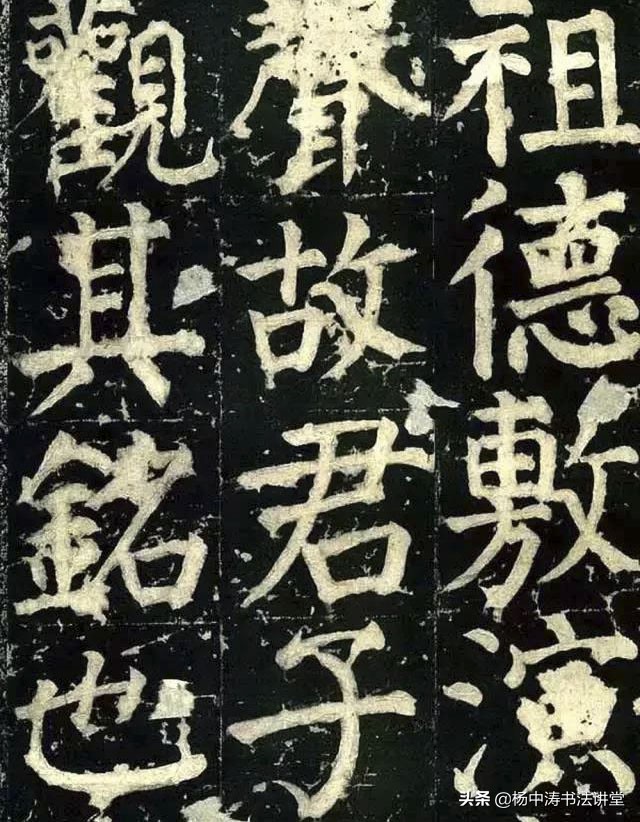 祖德敷演
聲故君子
觀其銘也
头条 @杨中涛书法讲堂